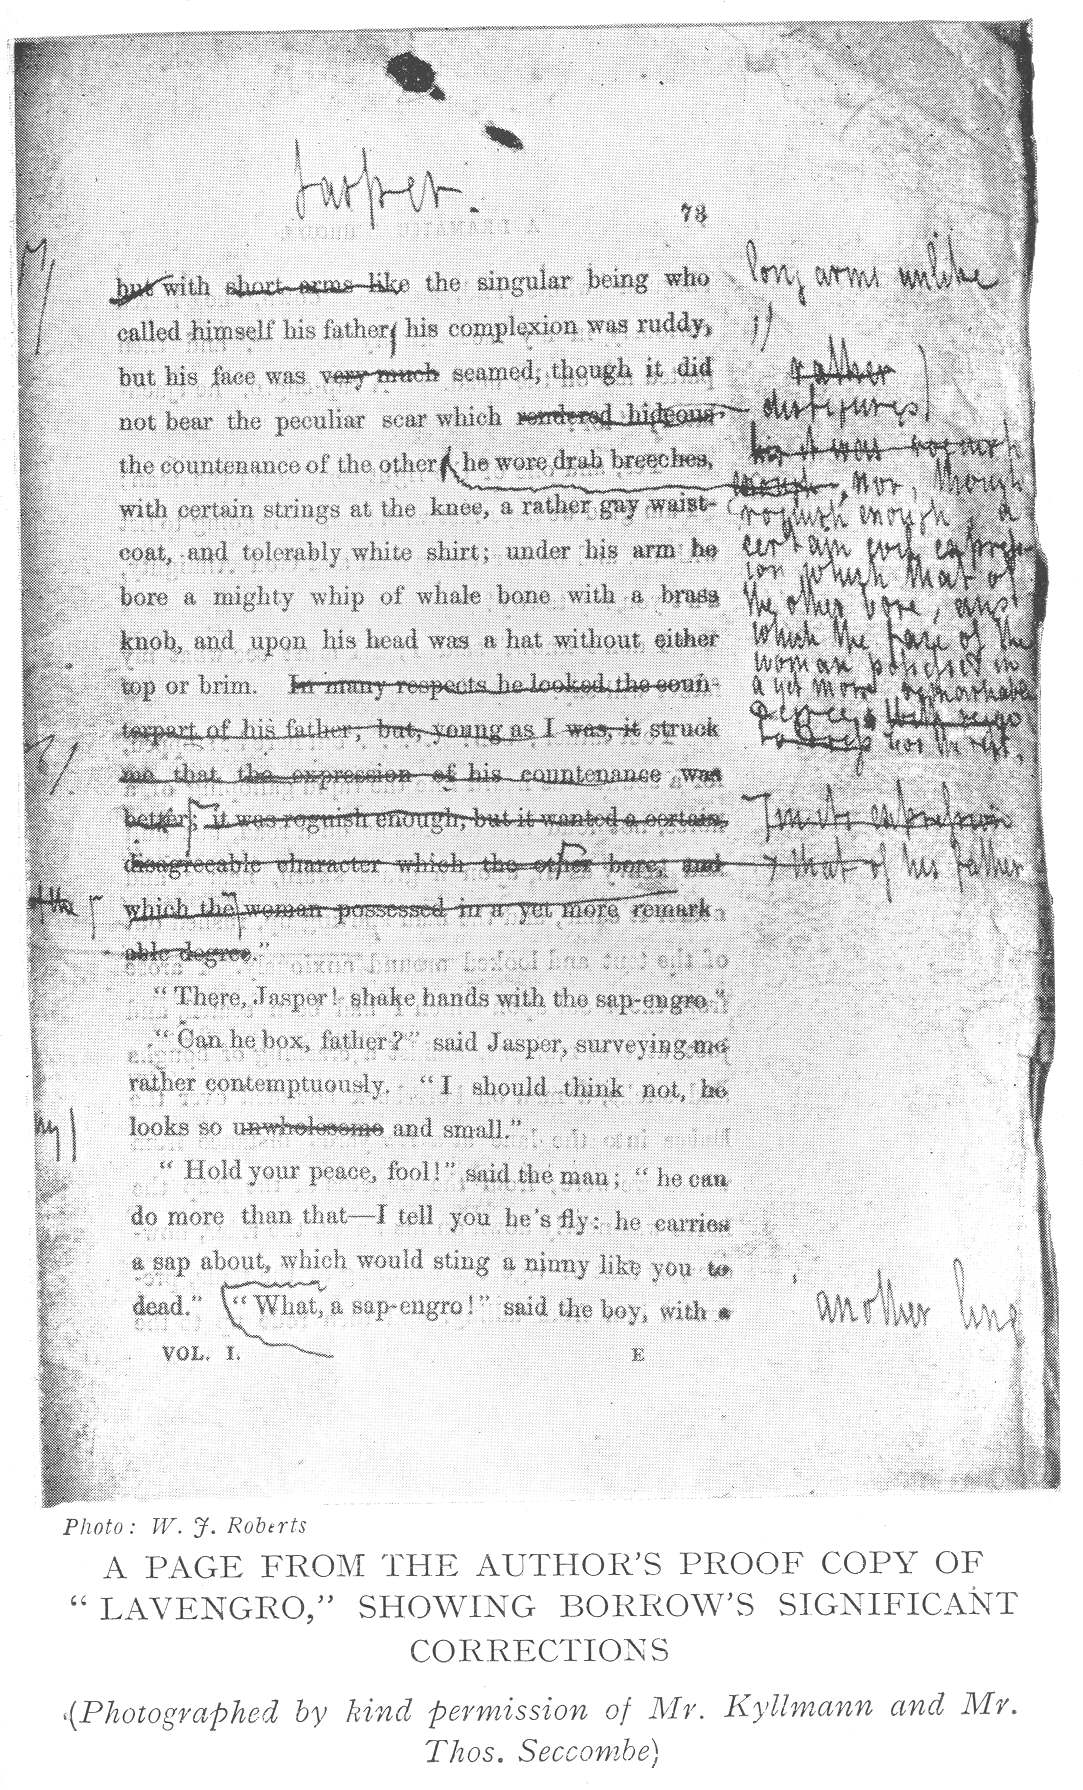 Jasper.
73
but with short arms like the singular being who
long arms unlike
called himself his father, his complexion was ruddy,
;/
but his face was very much seamed; though it did
rather
not bear the peculiar scar which rendered hideous
disfigures
the countenance of the other; he wore drab breeches,
his it was roguish
enough, nor, though
with certain strings at the knee, a rather gay waist-
roguish enough, a
coat, and tolerably white shirt; under his arm he
certain evil express-
ion which that of
bore a mighty whip of whale bone with a brass
the other bore, and
knob, and upon his head was a hat without either
which the face of the
woman possessed in
top or brim. In many respects he looked the coun-
a yet more remarkable
degree
terpart of his father, but, young as I was, it struck
for the rest,
me that the expression of his countenance was
better; it was roguish enough, but it wanted a certain
In its expression
disagreeable character which the other bore, and
that of his father
the
which the woman possessed in a yet more remark-
able degree."
"There, Jasper! shake hands with the sap-engro."
"Can he box, father?" said Jasper, surveying me
rather contemptuously. "I should think not, he
looks so unwholesome and small."
"Hold your peace, fool!" said the man; "he can
do more than that—I tell you he's fly: he carries
a sap about, which would sting a ninny like you to
dead." "What, a sap-engro!" said the boy, with a
another line
VOL. I. E
Photo: W. J. Roberts
A PAGE FROM THE AUTHOR'S PROOF COPY OF
"LAVENGRO," SHOWING BORROW'S SIGNIFICANT
CORRECTIONS
(Photographed by kind permission of Mr. Kyllmann and Mr.
Thos. Seccombe)